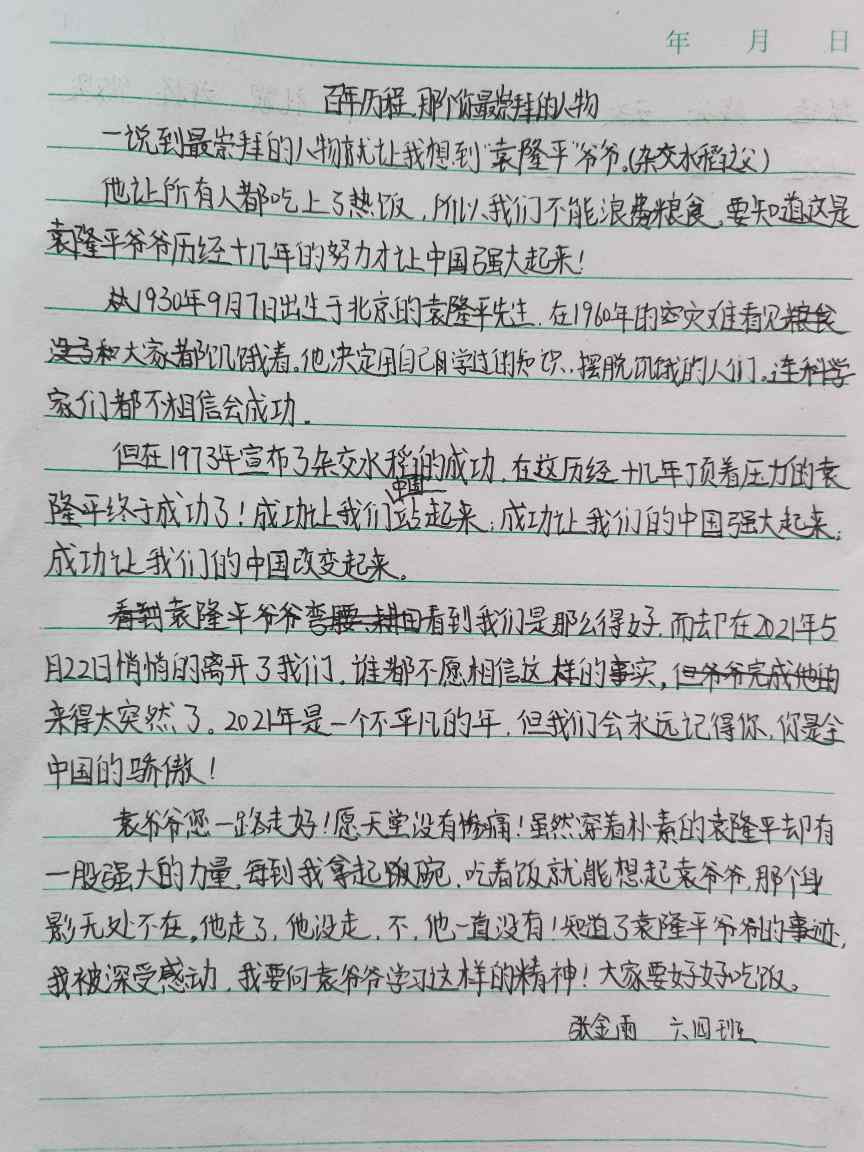 年 月 日
百年历程,那个你最崇拜的人物
一说到最崇拜的人物就让我想到“袁隆平”爷爷。(杂交水稻之父)
他让所有人都吃上了热饭,所以,我们不能浪费粮食,要知道这是
袁隆平爷爷历经十几年的努力才让中国强大起来!
从1930年9月7日出生于北京的袁隆平先生,在1960年的灾难看见粮食
没了和大家都饥饿着。他决定用自己所学过的知识,摆脱饥饿的人们。连科学
家们都不相信会成功。
但在1973年宣布了杂交水稻的成功,在这历经十几年顶着压力的袁
隆平终于成功了!成功让我们中国站起来;成功让我们的中国强大起来;
成功让我们的中国改变起来。
看到袁隆平爷爷弯腰耕田看到我们是那么得好,而却在2021年5
月22日悄悄的离开了我们,谁都不愿相信这样的事实,但爷爷完成他的
来得太突然了。2021年是一个不平凡的年,但我们会永远记得你,你是全
中国的骄傲!
袁爷爷您一路走好!愿天堂没有惨痛!虽然穿着朴素的袁隆平却有
一股强大的力量,每到我拿起饭碗,吃着饭就能想起袁爷爷,那个身
影无处不在,他走了,他没走,不,他一直没有!知道了袁隆平爷爷的事迹,
我被深受感动,我要向袁爷爷学习这样的精神!大家要好好吃饭。
张金雨 六四班